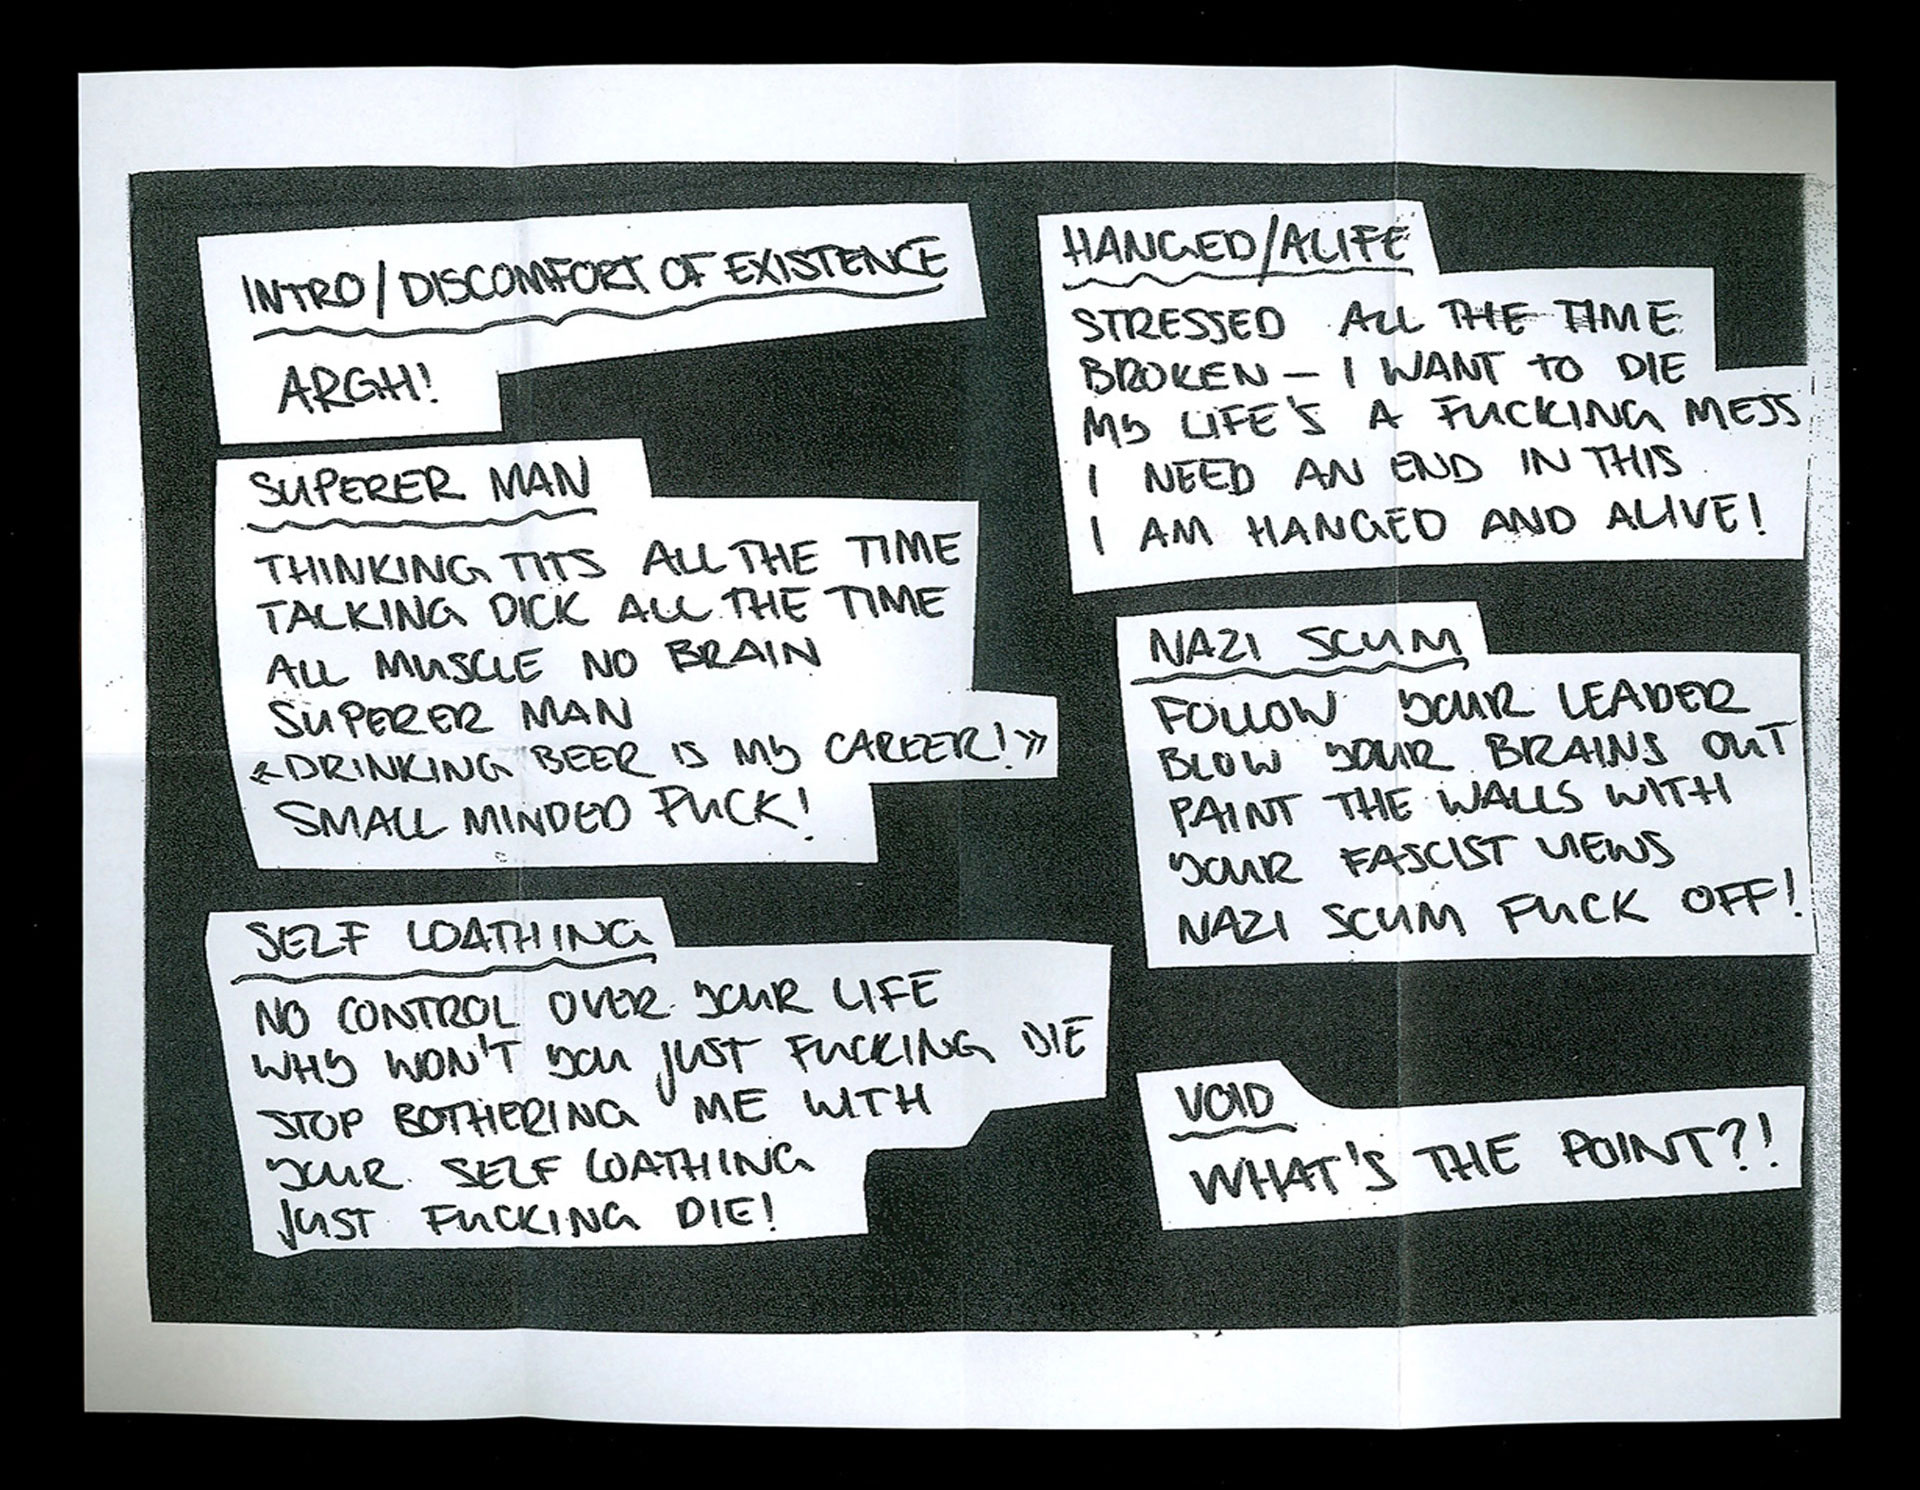 INTRO/DISCOMFORT OF EXISTENCE
ARGH!
SUPERER MAN
THINKING TITS ALL THE TIME
TALKING DICK ALL THE TIME
ALL MUSCLE NO BRAIN
SUPERER MAN
«DRINKING BEER IS MY CAREER!»
SMALL MINDED FUCK!
SELF LOATHING
NO CONTROL OVER YOUR LIFE
WHY WON'T YOU JUST FUCKING DIE
STOP BOTHERING ME WITH
YOUR SELF LOATHING
JUST FUCKING DIE!
HANGED/ALIFE
STRESSED ALL THE TIME
BROKEN – I WANT TO DIE
MY LIFE'S A FUCKING MESS
I NEED AN END IN THIS
I AM HANGED AND ALIVE!
NAZI SCUM
FOLLOW YOUR LEADER
BLOW YOUR BRAINS OUT
PAINT THE WALLS WITH
YOUR FASCIST VIEWS
NAZI SCUM FUCK OFF!
VOID
WHAT'S THE POINT?!